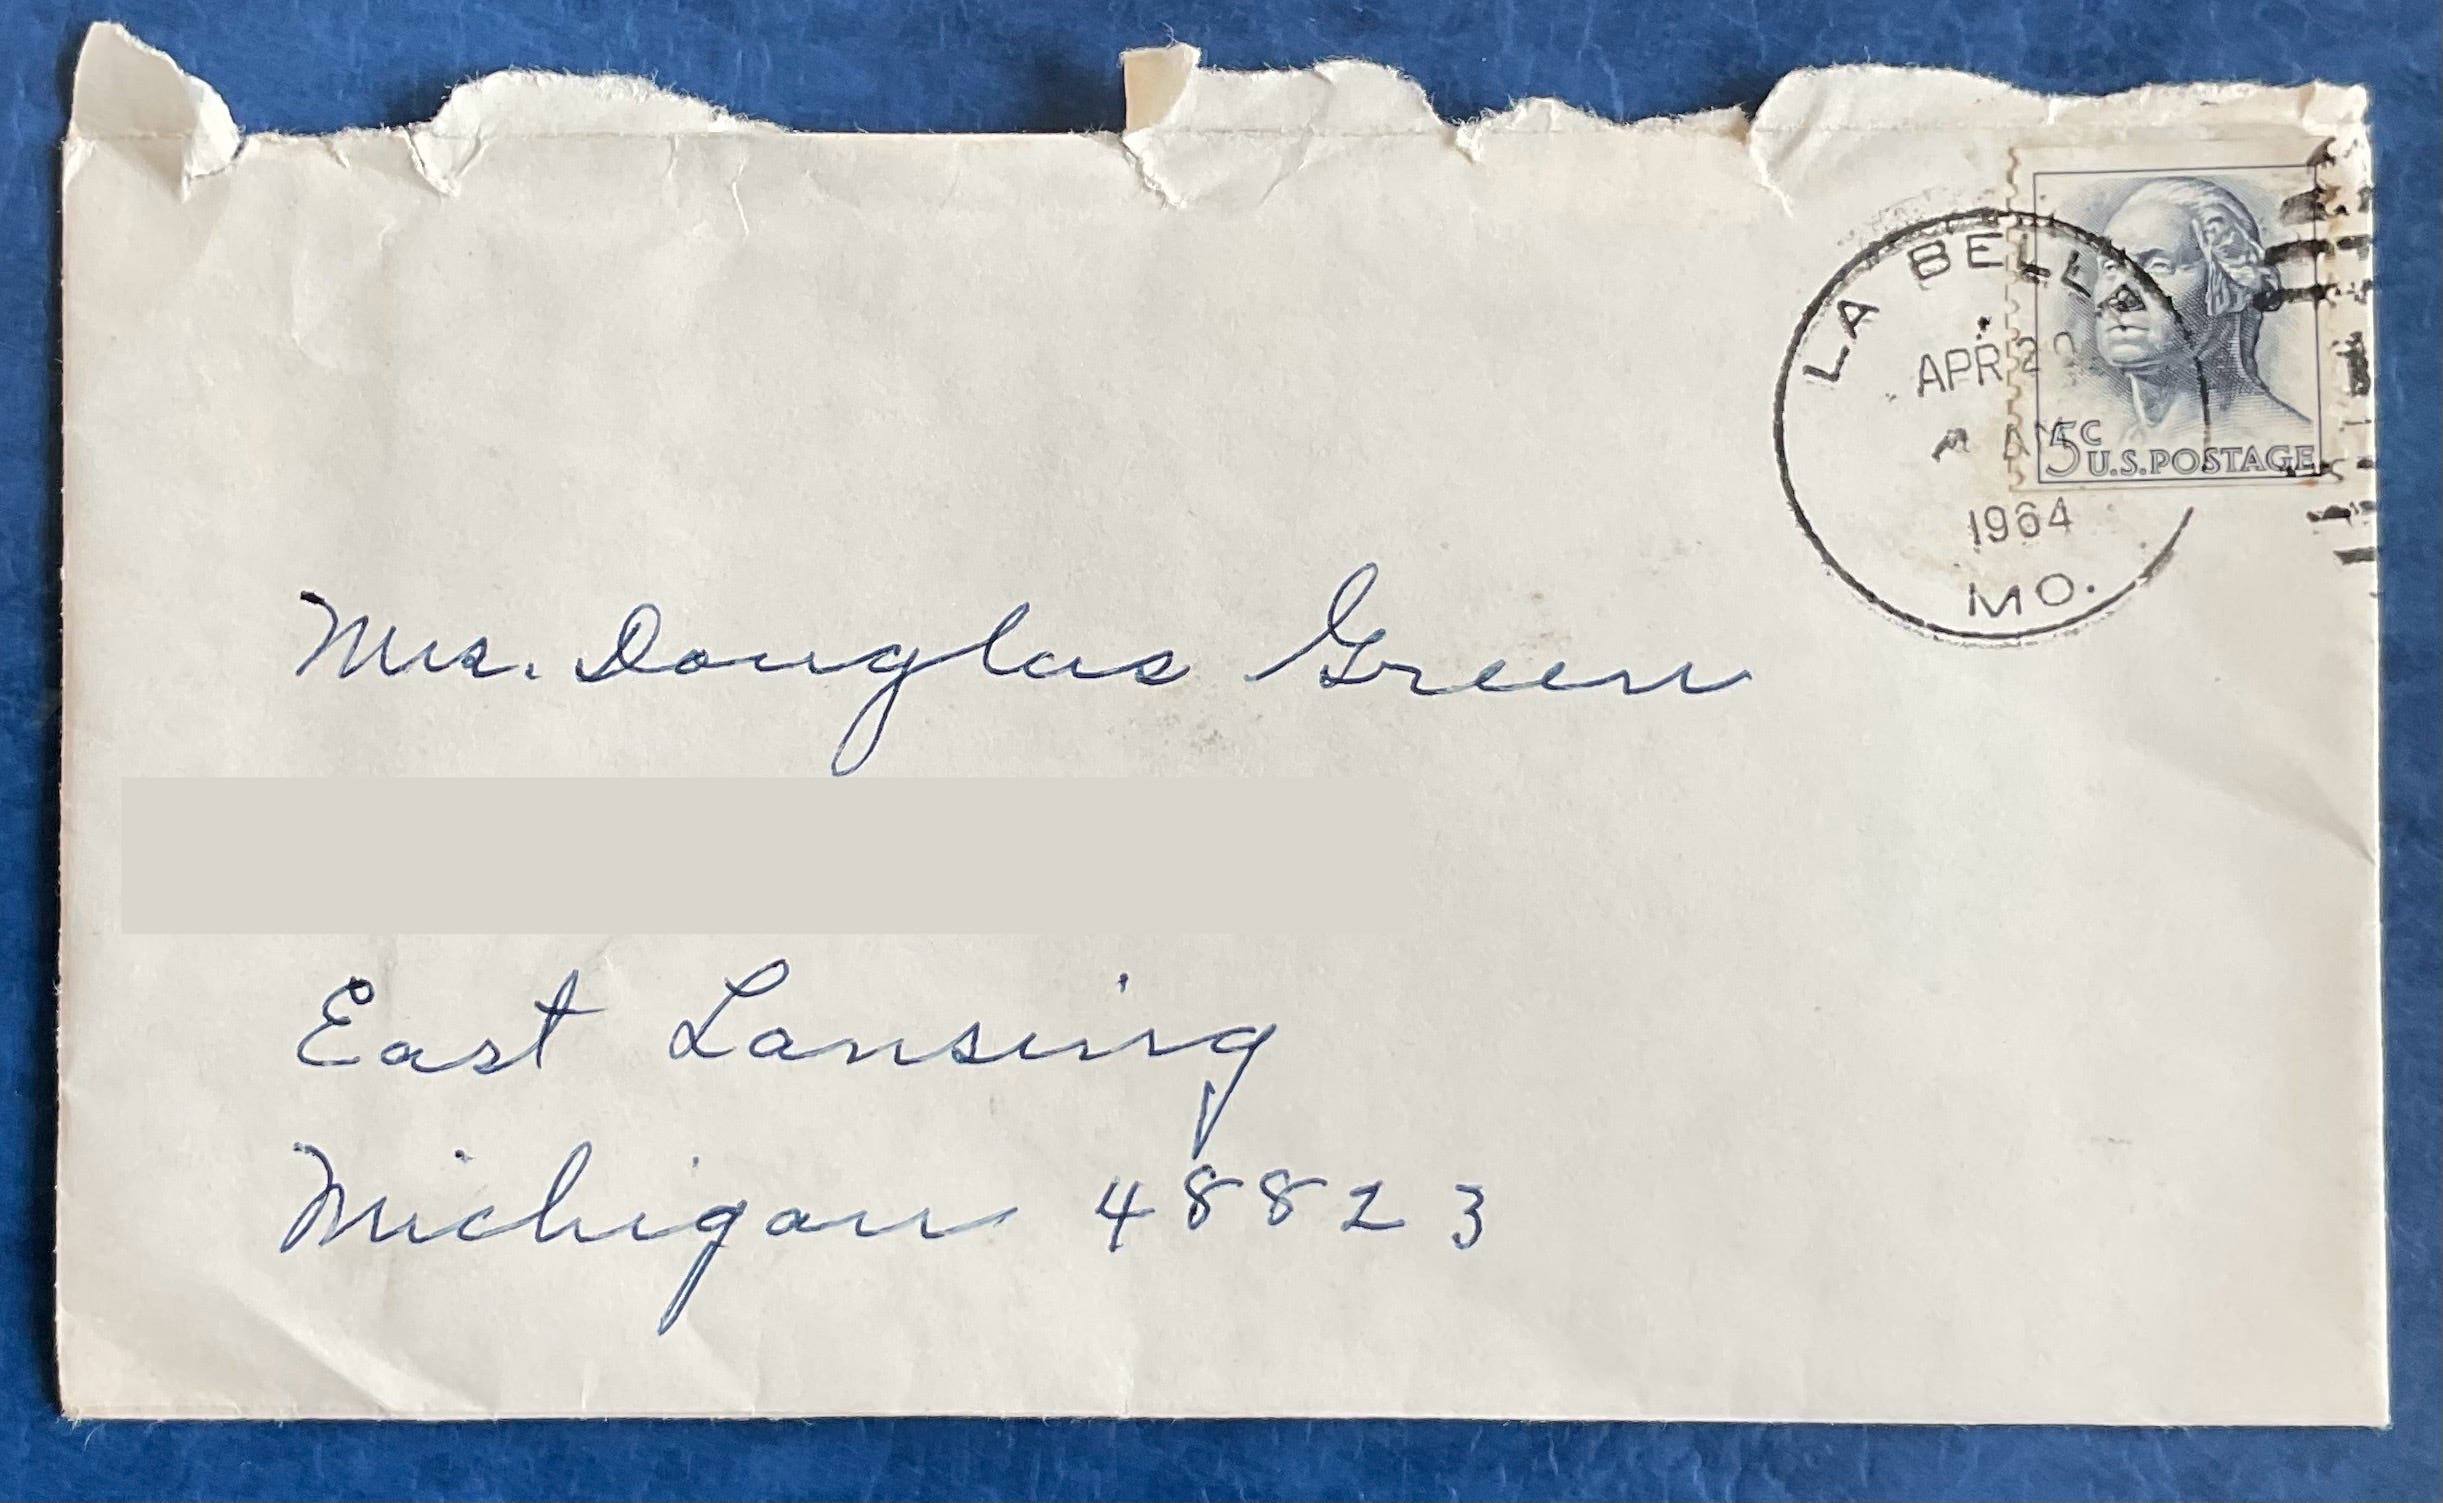 LA BELLE
APR 20
AM
1964
MO.
5c
U.S. POSTAGE
Mrs. Douglas Green
East Lansing
Michigan 48823